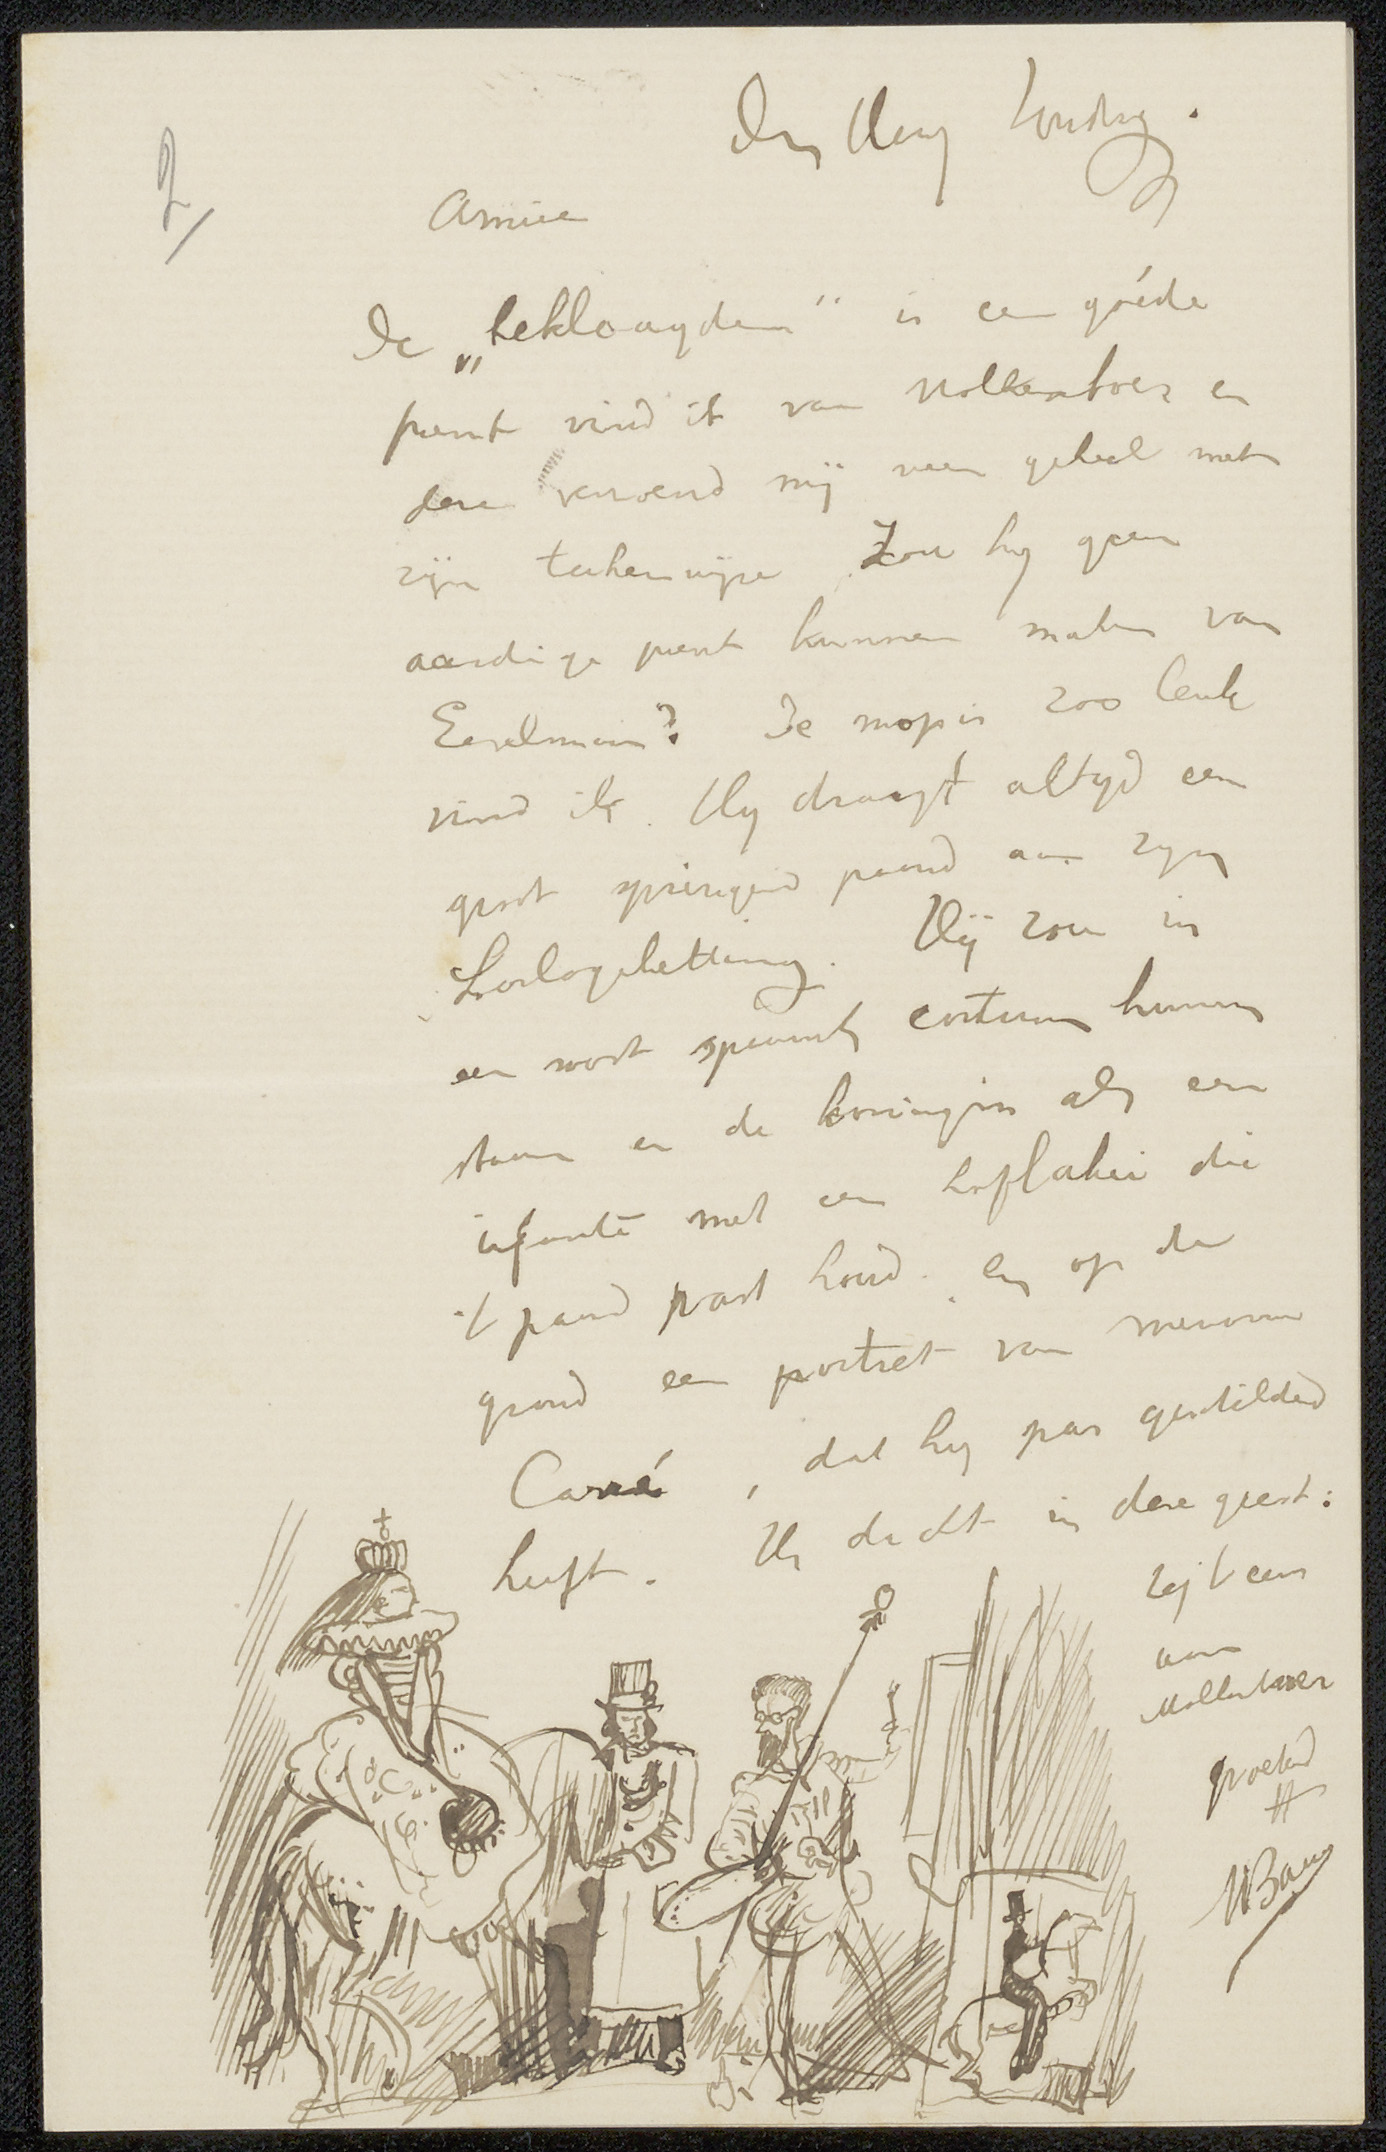 2/
Den Haag Zondag.
Amice
De „beklaagden" is een goéde
prent vind ik van Mollenboer en
deze verzoend mij weer geheel met
zijn tekenwijze. Zou hij geen
aardige prent kunnen maken van
Eerelman? De mop is zoo leuk
vind ik. Hij draagt altijd een
groot springend paard aan zijn
horlogeketting. Hij zou in
een soort spaansch costuum kunnen
staan en de koningin als een
infante met een hoflakei die
't paard vast houd. en op den
grond een portret van mevrouw
Carré, dat hij pas geschilderd
heeft. Ik dacht in deze geest:
zeg 't eens
aan
Mollenboer
gegroet
WBauer